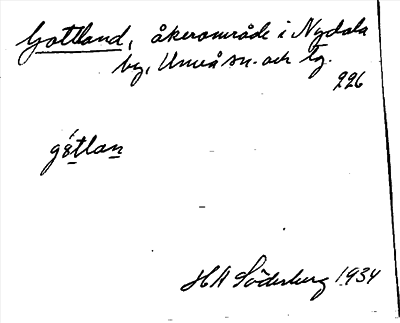 Gottland, åkerområde i Nydala
by, Umeå sn. och tg.
226
gótlan
HA Söderberg 1934